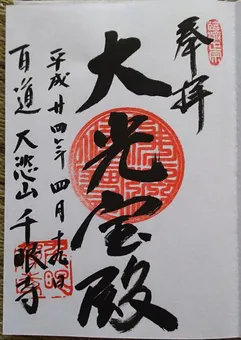 奉拝
大光宝殿
平成廿四年四月十九日
百道 大悲山 千眼寺